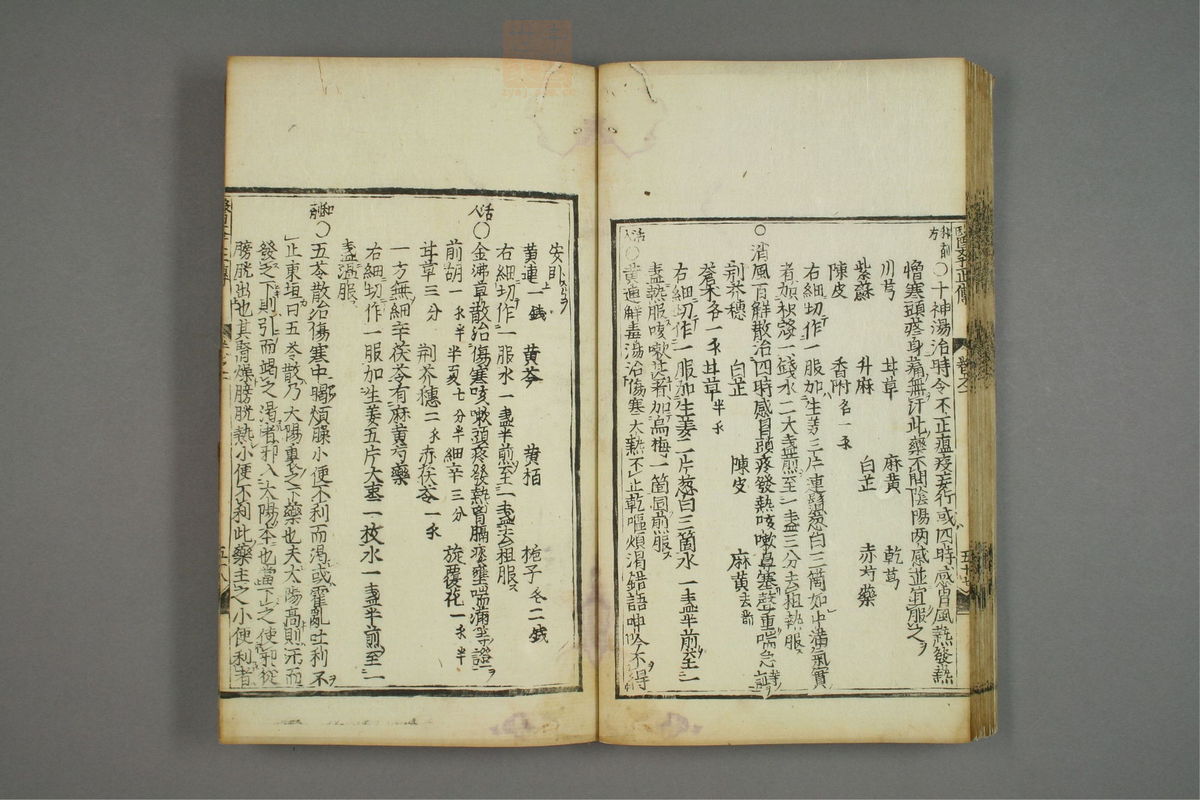 醫學正傳 卷之二
○十神湯治時令不正瘟疫妄行或四時感冒風熱發熱
憎寒頭疼身痛無汗此藥不問陰陽兩感並宜服之
川芎 甘草 麻黄 乾葛
紫蘇 升麻 白芷 赤芍藥
陳皮 香附各一錢
右細切作一服加生姜三片連鬚葱白三箇如中滿氣實
者加枳殼一錢水二大盞煎至一盞三分去柤熱服
○消風百解散治四時感冒頭疼發熱咳嗽鼻塞聲重喘急等證
荆芥穗 白芷 陳皮 麻黄去節
蒼术各一錢 甘草半錢
右細切作一服加生姜二片葱白三箇水一盞半煎至一
盞熱服咳嗽甚者加烏梅一箇同煎服
活人
○黄連解毒湯治傷寒大熱不止乾嘔煩渇錯語呻吟不得
安卧
黄連一錢 黄芩 黄栢 梔子各二錢
右細切作一服水一盞半煎至一盞去柤服
活人
○金沸草散治傷寒咳嗽頭疼發熱胷膈痰壅喘滿等證
前胡一錢半 半夏七分半 細辛三分 旋覆花一錢半
甘草三分 荆芥穗二錢 赤茯苓一錢
一方無細辛茯苓有麻黄芍藥
右細切作一服加生姜五片大棗一枚水一盞半煎至一
盞温服
和劑
○五苓散治傷寒中暍煩躁小便不利而渴或霍亂吐利不
止東垣曰五苓散乃太陽裏之下藥也夫太陽高則汗而
發之下則引而竭之渴者邪入太陽本也當下之使邪從
膀胱出也其腎燥膀胱熱小便不利此藥主之小便利者